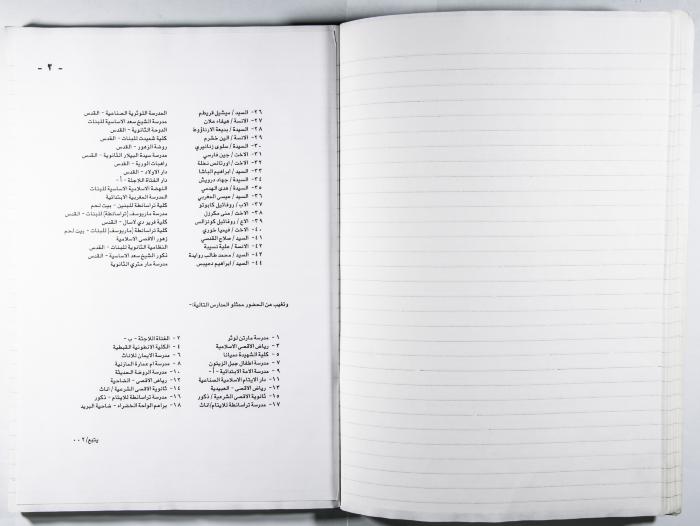 - ٢ -
٢٦- السيد / ميشيل قريطم المدرسة اللوثرية الصناعية - القدس
٢٧- الانسة / هيفاء علان مدرسة الشيخ سعد الاساسية للبنات
٢٨- السيدة / بديعة الارناؤوط الدوحة الثانوية - القدس
٢٩- الانسة / الين خشرم كلية شميدت للبنات - القدس
٣٠- السيدة / سلوى زنانيري روضة الزهور - القدس
٣١- الاخت / جين فارسي مدرسة سيدة البيلار الثانوية - القدس
٣٢- الاخت / اورتانس نخلة راهبات الوردية - القدس
٣٣- السيد / ابراهيم الباشا دار الاولاد - القدس
٣٤- السيدة / جهاد درويش دار الفتاة اللاجئة - أ -
٣٥- السيدة / هدى الهدمي النهضة الاسلامية الاساسية للبنات
٣٦- السيد / عيسى المغربي المدرسة المغربية الابتدائية
٣٧- الاب / روفائيل كابوتو كلية تراسانطة للبنين - بيت لحم
٣٨- الاخت / منى مكرزل مدرسة ماريوسف (تراسانطة) للبنات - القدس
٣٩- الاخ / روفائيل كونزالس كلية فرير دي لاسال - القدس
٤٠- الاخت / فيميا خوري كلية تراسانطة (ماريوسف) للبنات - بيت لحم
٤١- السيد / صلاح القدسي زهور الاقصى الاسلامية
٤٢- الانسة / علية نسيبة النظامية الثانوية للبنات - القدس
٤٣- السيد / محمد طالب روايدة ذكور الشيخ سعد الاساسية - القدس
٤٤- السيد / ابراهيم دعيبس مدرسة مار متري الثانوية
وتغيب عن الحضور ممثلو المدارس التالية:-
١- مدرسة مارتن لوثر ٢- الفتاة اللاجئة - ب -
٣- رياض الاقصى الاسلامية ٤- الكلية الانطونية القبطية
٥- كلية الشهيدة دميانا ٦- مدرسة الايمان للاناث
٧- مدرسة اطفال جبل الزيتون ٨- مدرسة ام عمارة المازنية
٩- مدرسة الامة الابتدائية - أ - ١٠- مدرسة الروضة الحديثة
١١- دار الايتام الاسلامية الصناعية ١٢- رياض الاقصى - الضاحية
١٣- رياض الاقصى - العبيدية ١٤- ثانوية الاقصى الشرعية / اناث
١٥- ثانوية الاقصى الشرعية / ذكور ١٦- مدرسة تراسانطة للايتام - ذكور
١٧- مدرسة تراسانطة للايتام/اناث ١٨- براعم الواحة الخضراء - ضاحية البريد
يتبع/٠٠٢